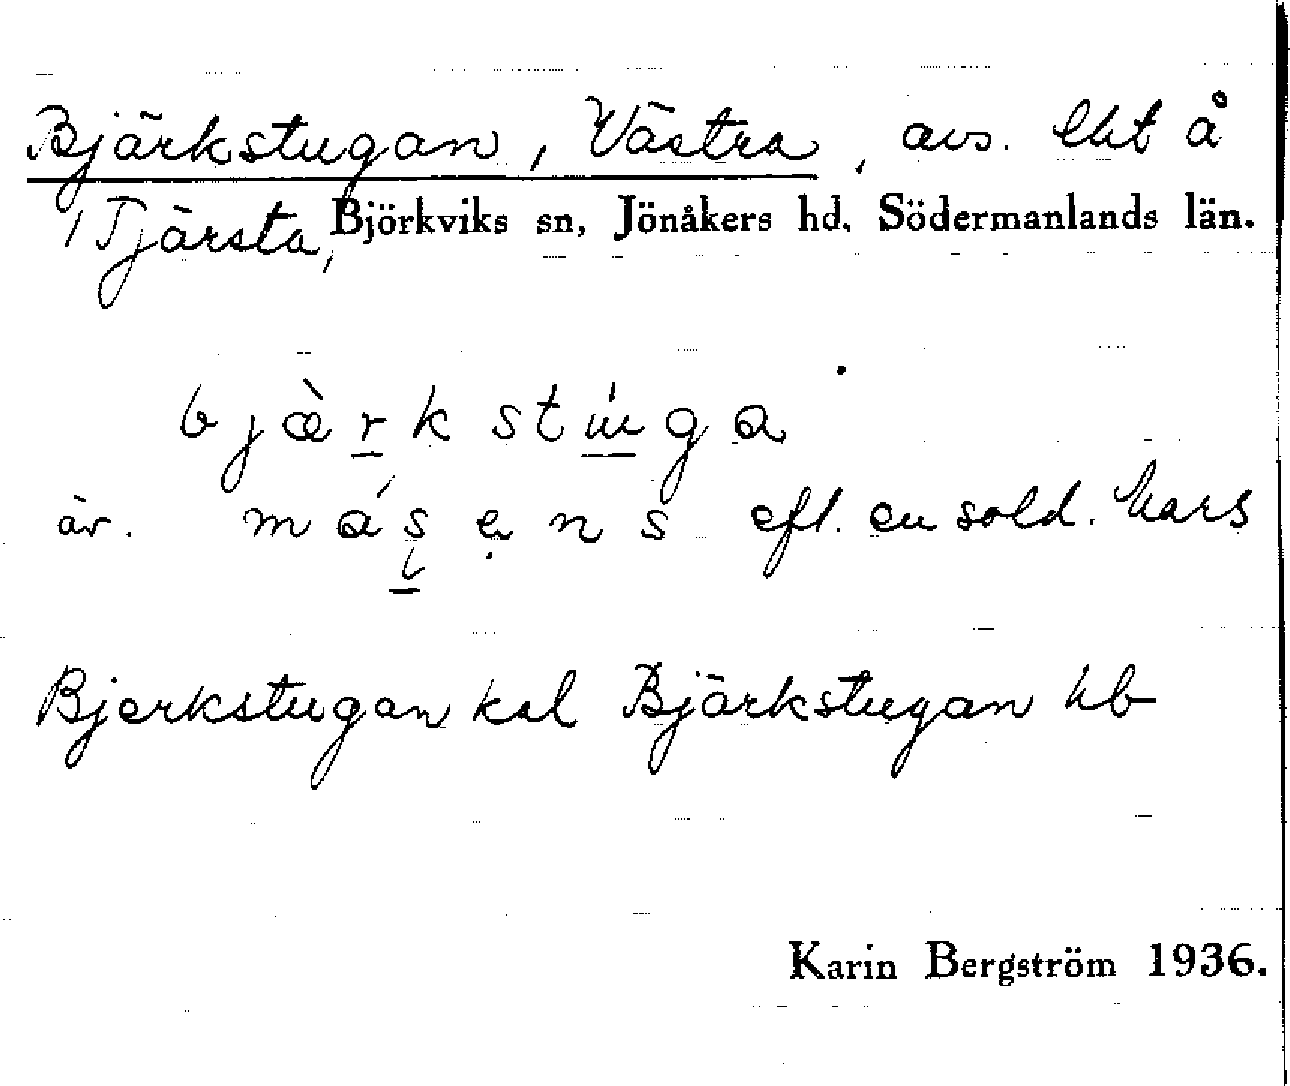 Bjärkstugan, Västra, avs. lht å
1 Tjärsta, Björkviks sn, Jönåkers hd, Södermanlands län.
bjæ̀rkstúga
äv. máşẹns eft. en sold. Mars
Bjerkstugan kal Bjärkstugan hb
Karin Bergström 1936.